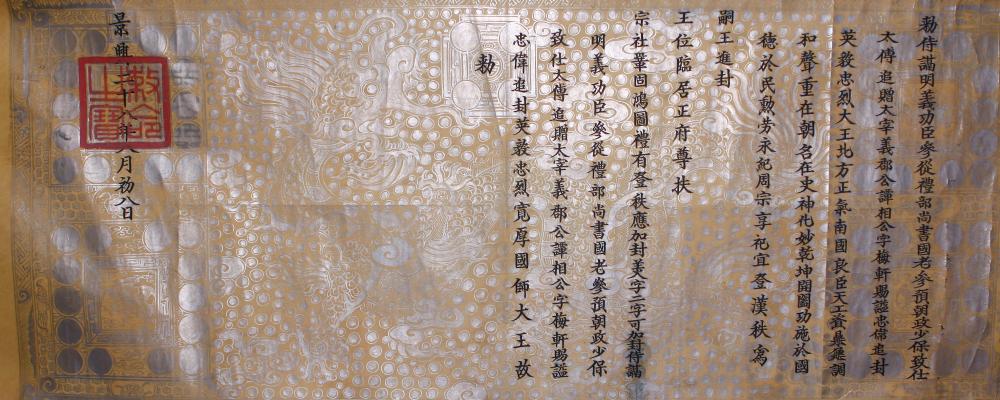 勅侍講明義功臣參從禮部尚書國老參預朝政少保致仕
太傅追贈太宰義郡公譚相公字梅軒賜謚忠偉追封
英毅忠烈大王北方正氣南國良臣天工資燮調
和聲重在朝名在史神化妙乾坤闔闢功施於國
德於民勳勞永紀周宗享祀宜登漢秩寫
嗣王進封
王位臨居正府尊扶
宗社鞏固鴻圖禮有登秩應加封美字二字可加封侍講
明義功臣參從禮部尚書國老參預朝政少保
致仕太傅追贈太宰義郡公譚相公字梅軒賜謚
忠偉追封英毅忠烈寬厚國師大王故
勅
景興二十八年八月初八日
敕命之寶